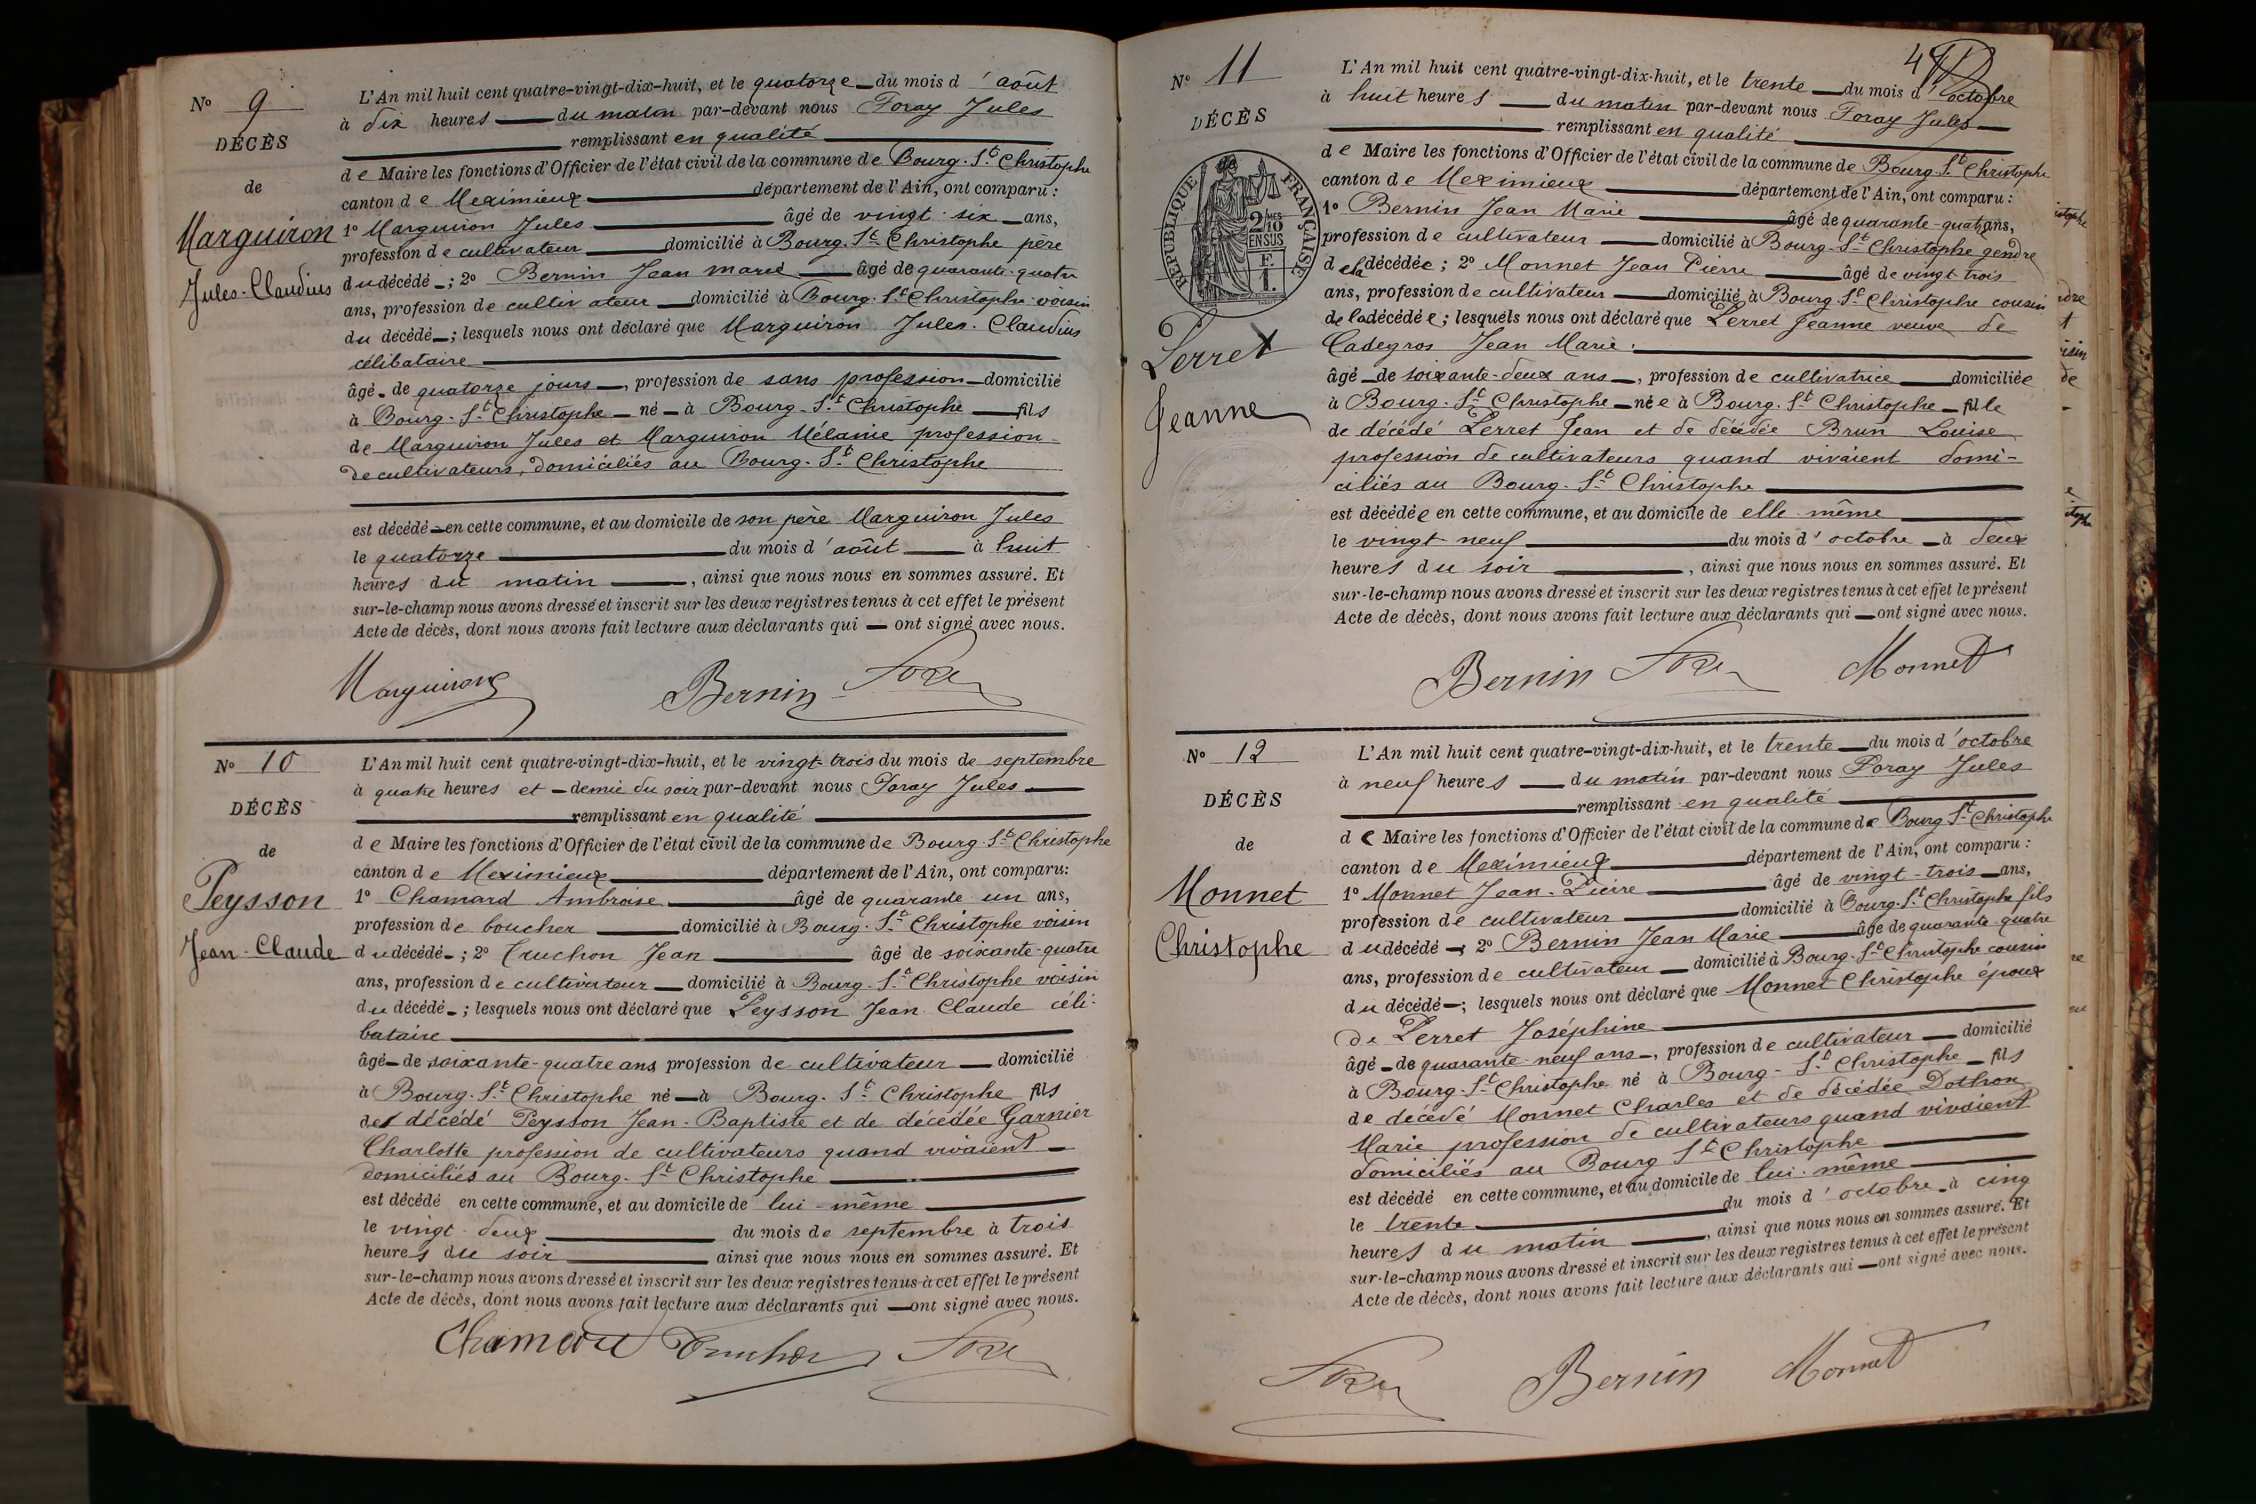 N° 9
DÉCÈS
de
Marguiron
Jules-Claudius
L'An mil huit cent quatre-vingt-dix-huit, et le quatorze du mois d'août
à dix heures du matin par-devant nous Foray Jules
remplissant en qualité
de Maire les fonctions d'Officier de l'état civil de la commune de Bourg-St Christophe
canton de Meximieux département de l'Ain, ont comparu :
1° Marguiron Jules âgé de vingt-six ans,
profession de cultivateur domicilié à Bourg-St Christophe père
du décédé ; 2° Bernin Jean Marie âgé de quarante-quatre
ans, profession de cultivateur domicilié à Bourg-St Christophe voisin
du décédé ; lesquels nous ont déclaré que Marguiron Jules-Claudius
célibataire
âgé de quatorze jours, profession de sans profession domicilié
à Bourg-St Christophe né à Bourg-St Christophe fils
de Marguiron Jules et Marguiron Mélanie profession
de cultivateurs, domiciliés au Bourg-St Christophe
est décédé en cette commune, et au domicile de son père Marguiron Jules
le quatorze du mois d'août à huit
heures du matin, ainsi que nous nous en sommes assuré. Et
sur-le-champ nous avons dressé et inscrit sur les deux registres tenus à cet effet le présent
Acte de décès, dont nous avons fait lecture aux déclarants qui ont signé avec nous.
Marguiron Bernin Foray
N° 10
DÉCÈS
de
Peysson
Jean-Claude
L'An mil huit cent quatre-vingt-dix-huit, et le vingt-trois du mois de septembre
à quatre heures et demie du soir par-devant nous Foray Jules
remplissant en qualité
de Maire les fonctions d'Officier de l'état civil de la commune de Bourg-St Christophe
canton de Meximieux département de l'Ain, ont comparu :
1° Chamard Ambroise âgé de quarante un ans,
profession de boucher domicilié à Bourg-St Christophe voisin
du décédé ; 2° Truchon Jean âgé de soixante-quatre
ans, profession de cultivateur domicilié à Bourg-St Christophe voisin
du décédé ; lesquels nous ont déclaré que Peysson Jean Claude céli-
bataire
âgé de soixante-quatre ans profession de cultivateur domicilié
à Bourg-St Christophe né à Bourg-St Christophe fils
de décédé Peysson Jean-Baptiste et de décédée Garnier
Charlotte profession de cultivateurs quand vivaient
domiciliés au Bourg-St Christophe
est décédé en cette commune, et au domicile de lui-même
le vingt-deux du mois de septembre à trois
heures du soir ainsi que nous nous en sommes assuré. Et
sur-le-champ nous avons dressé et inscrit sur les deux registres tenus à cet effet le présent
Acte de décès, dont nous avons fait lecture aux déclarants qui ont signé avec nous.
Chamard Truchon Foray
4
N° 11
DÉCÈS
RÉPUBLIQUE FRANÇAISE
2/10
EN SUS
F.
1.
Perret
Jeanne
L'An mil huit cent quatre-vingt-dix-huit, et le trente du mois d'octobre
à huit heures du matin par-devant nous Foray Jules
remplissant en qualité
de Maire les fonctions d'Officier de l'état civil de la commune de Bourg-St Christophe
canton de Meximieux département de l'Ain, ont comparu :
1° Bernin Jean Marie âgé de quarante-quatre ans,
profession de cultivateur domicilié à Bourg-St Christophe gendre
de la décédée ; 2° Monnet Jean Pierre âgé de vingt-trois
ans, profession de cultivateur domicilié à Bourg-St Christophe cousin
de la décédée ; lesquels nous ont déclaré que Perret Jeanne veuve de
Cadegros Jean Marie.
âgé de soixante-deux ans, profession de cultivatrice domiciliée
à Bourg-St Christophe née à Bourg-St Christophe fille
de décédé Perret Jean et de décédée Brun Louise
profession de cultivateurs quand vivaient domi-
ciliés au Bourg-St Christophe
est décédée en cette commune, et au domicile de elle-même
le vingt-neuf du mois d'octobre à deux
heures du soir, ainsi que nous nous en sommes assuré. Et
sur-le-champ nous avons dressé et inscrit sur les deux registres tenus à cet effet le présent
Acte de décès, dont nous avons fait lecture aux déclarants qui ont signé avec nous.
Bernin Foray Monnet
N° 12
DÉCÈS
de
Monnet
Christophe
L'An mil huit cent quatre-vingt-dix-huit, et le trente du mois d'octobre
à neuf heures du matin par-devant nous Foray Jules
remplissant en qualité
de Maire les fonctions d'Officier de l'état civil de la commune de Bourg St Christophe
canton de Meximieux département de l'Ain, ont comparu :
1° Monnet Jean-Pierre âgé de vingt-trois ans,
profession de cultivateur domicilié à Bourg-St Christophe fils
du décédé ; 2° Bernin Jean Marie âgé de quarante-quatre
ans, profession de cultivateur domicilié à Bourg-St Christophe cousin
du décédé ; lesquels nous ont déclaré que Monnet Christophe époux
de Perret Joséphine
âgé de quarante-neuf ans, profession de cultivateur domicilié
à Bourg-St Christophe né à Bourg-St Christophe fils
de décédé Monnet Charles et de décédée Dothon
Marie profession de cultivateurs quand vivaient
domiciliés au Bourg St Christophe
est décédé en cette commune, et au domicile de lui-même
le trente du mois d'octobre à cinq
heures du matin, ainsi que nous nous en sommes assuré. Et
sur-le-champ nous avons dressé et inscrit sur les deux registres tenus à cet effet le présent
Acte de décès, dont nous avons fait lecture aux déclarants qui ont signé avec nous.
Foray Bernin Monnet